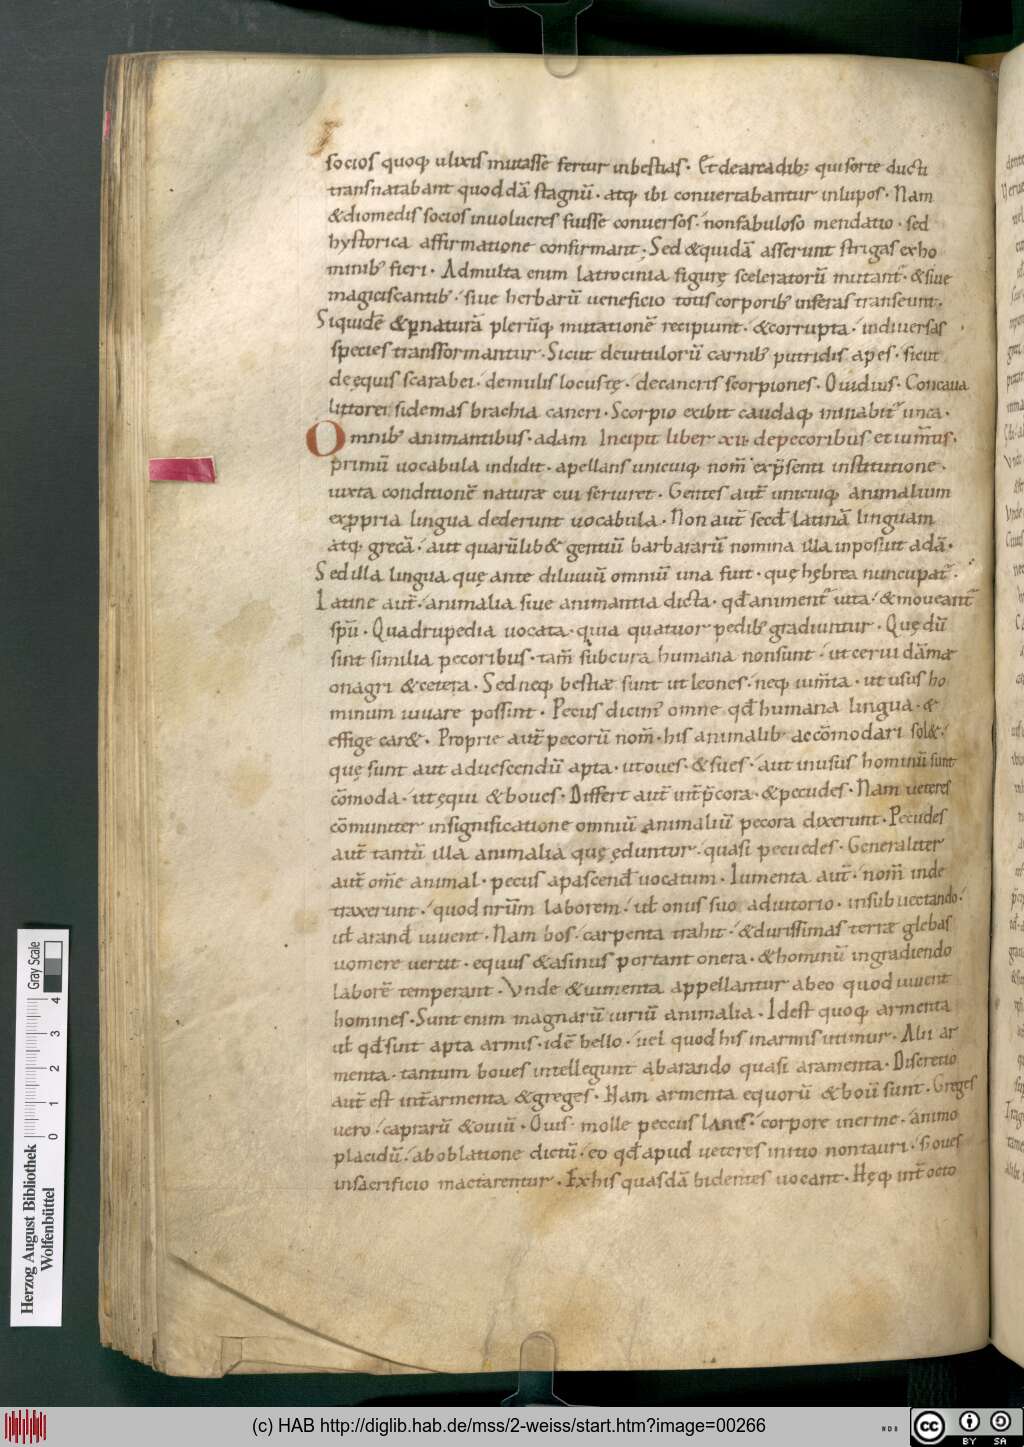 socios quoq; ulixis mutasse fertur inbestias. Et dearcadib; qui sorte ducti
transnatabant quoddā stagnū. atq; ibi conuertabantur inlupos. Nam
&diomedis socios inuolucres fuisse conuersos. nonfabuloso mendatio. sed
hystorica affirmatione confirmant. Sed &quidā asserunt strigas exho
minib; fieri. Admulta enim latrocinia figurę sceleratorū mutant̄. &siue
magiciscantib; siue herbarū ueneficio totis corporib; inferas transeunt.
Siquidē &ꝑnaturā plerūq; mutationē recipiunt. &corrupta. indiuersas
species transformantur. Sicut deuitulorū carnib; putridis apes. sicut
deęquis scarabei. demulis locustę. decancris scorpiones. Ouidius. Concaua
littorei sidemas brachia cancri. Scorpio exibit caudaq; minabit̄ unca.
Omnib; animantibus. adam Incipit liber xii depecoribus et ium̄tis.
primū uocabula indidit. apellans unicuiq; nom̄ exp̄senti institutione.
iuxta conditionē naturæ cui seruiret. Gentes aut̄ unicuiq; animalium
exꝓpria lingua dederunt uocabula. Non aut̄ secd̄ latinā linguam
atq; grecā. aut quarūlib& gentiū barbararū nomina illa inposuit adā.
Sed illa lingua quę ante diluuiū omniū una fuit. quę hębrea nuncupat̄.
Latine aut̄. animalia siue animantia dicta. qd̄ animent̄ uita. &moueant̄
sp̄u. Quadrupedia uocata. quia quatuor pedib; gradiuntur. Quę dū
sint similia pecoribus. tam̄ subcura humana nonsunt. ut cerui dāmæ
onagri &cetera. Sed neq; bestiæ sunt ut leones. neq; ium̄ta. ut usus ho
minum iuuare possint. Pecus dicim̄ omne qd̄ humana lingua. &
effige car&. Proprie aut̄ pecorū nom̄. his animalib; accōmodari sol&.
quę sunt aut aduescendū apta. ut oues. &sues. aut inusus hominū sunt
cōmoda. ut ęqui &boues. Differt aut̄ int̄ p̄cora. &pecudes. Nam ueteres
cōmuniter insignificatione omniū animaliū pecora dixerunt. Pecudes
aut̄ tantū illa animalia quę ęduntur. quasi pecuedes. Generaliter
aut̄ om̄e animal. pecus apascend̄ uocatum. Iumenta aut̄. nom̄ inde
traxerunt. quod nr̄um laborem. ut̄ onus suo adiutorio. insubuectando.
ut̄ arand̄ iuuent. Nam bos. carpenta trahit. &durissimas terræ glebas
uomere uertit. equus &asinus portant onera. &hominū ingradiendo
laborē temperant. Vnde &iumenta appellantur abeo quod iuuent
homines. Sunt enim magnarū uiriū animalia. Idest quoq; armenta
ut̄ qd̄ sint apta armis. idē bello. uel quod his inarmis utimur. Alii ar
menta. tantum boues intellegunt abarando quasi aramenta. Discretio
aut̄ est int̄armenta &greges. Nam armenta equorū &boū sunt. Greges
uero. caprarū &ouiū. Ouis. molle peccus lanis. corpore inerme. animo
placidū. aboblatione dictū. eo qd̄ apud ueteres initio nontauri. s; oues
insacrificio mactarentur. Exhis quasdā bidentes uocant. Hęq; int̄ octo
Herzog August Bibliothek
Wolfenbüttel
0 1 2 3 4
Gray Scale
(c) HAB http://diglib.hab.de/mss/2-weiss/start.htm?image=00266
NDB
cc BY SA